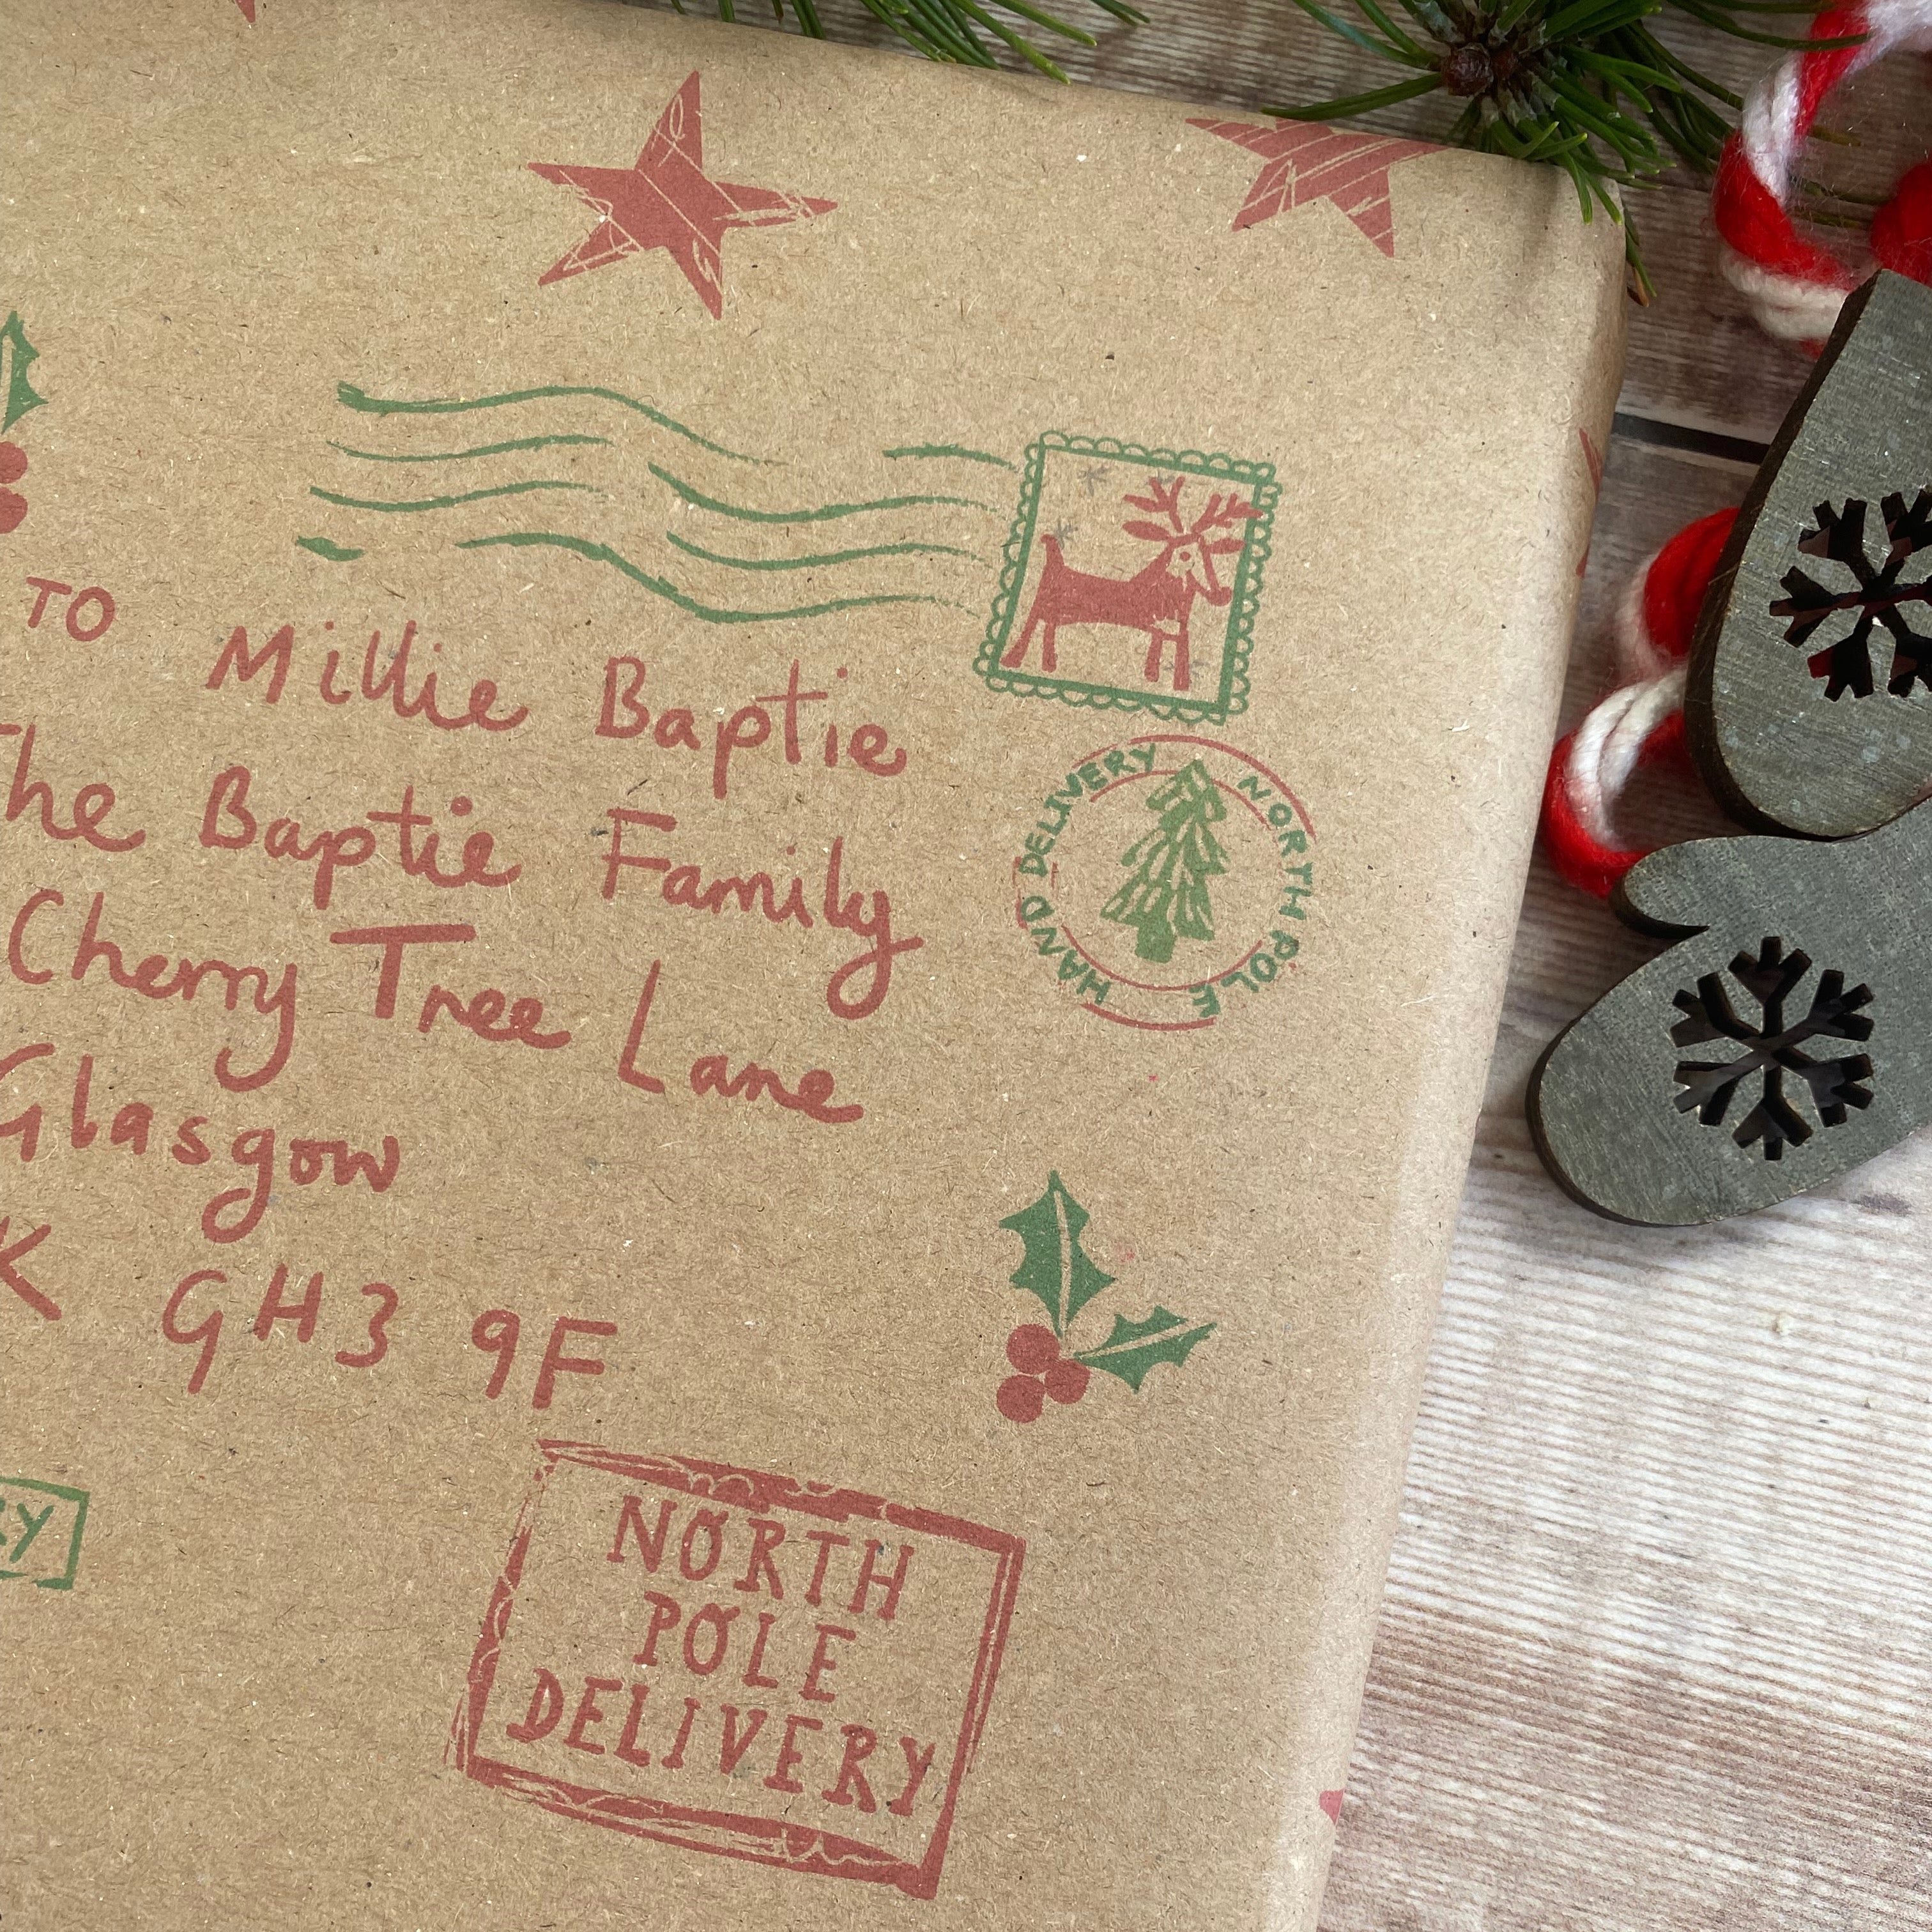 TO Millie Baptie
The Baptie Family
Cherry Tree Lane
Glasgow
GH3 9F
HAND DELIVERY NORTH POLE
NORTH
POLE
DELIVERY